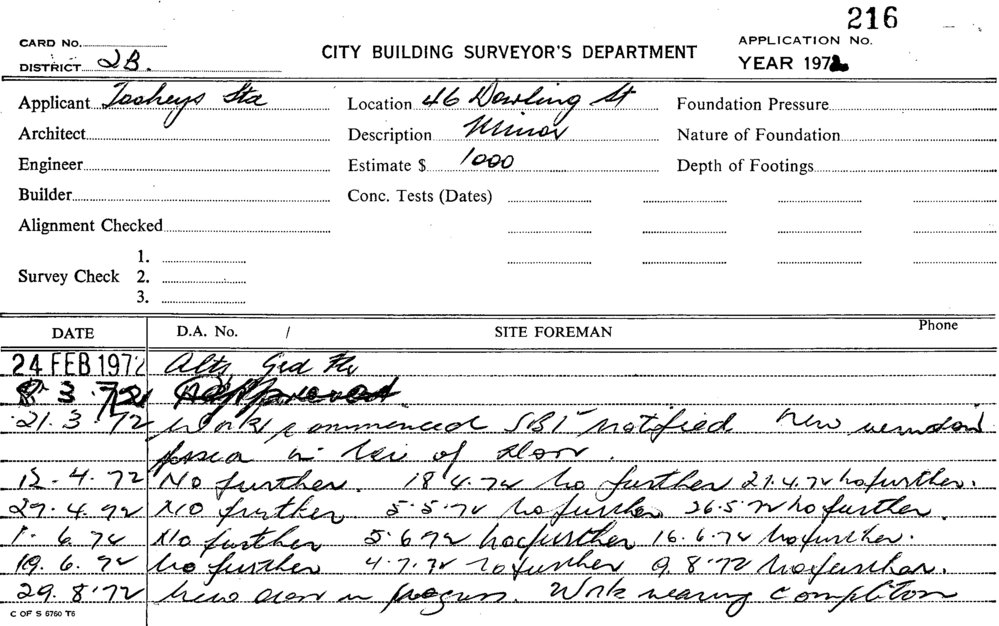 216
CARD No.
CITY BUILDING SURVEYOR'S DEPARTMENT
APPLICATION No.
DISTRICT 2B.
YEAR 1972
Applicant Tooheys Location 46 Dowling St Foundation Pressure
Architect Description Minor Nature of Foundation
Engineer Estimate $ 1000 Depth of Footings
Builder Conc. Tests (Dates)
Alignment Checked
1.
Survey Check 2.
3.
DATE D.A. No. / SITE FOREMAN Phone
24 FEB 1972 Alts Grd Flr
8 3 72 Approved
21.3.72 Work commenced SBI notified New window
in lieu of door
12.4.72 No further. 18 4.72 no further 21.4.72 no further.
27.4.72 No further 5.5.72 no further 26.5.72 no further.
1. 6.72 No further 5.6.72 no further 16.6.72 no further.
19.6.72 no further 4.7.72 no further 9.8.72 no further.
29.8.72 New door in progress. Work nearing completion
C OF S 6760 T6